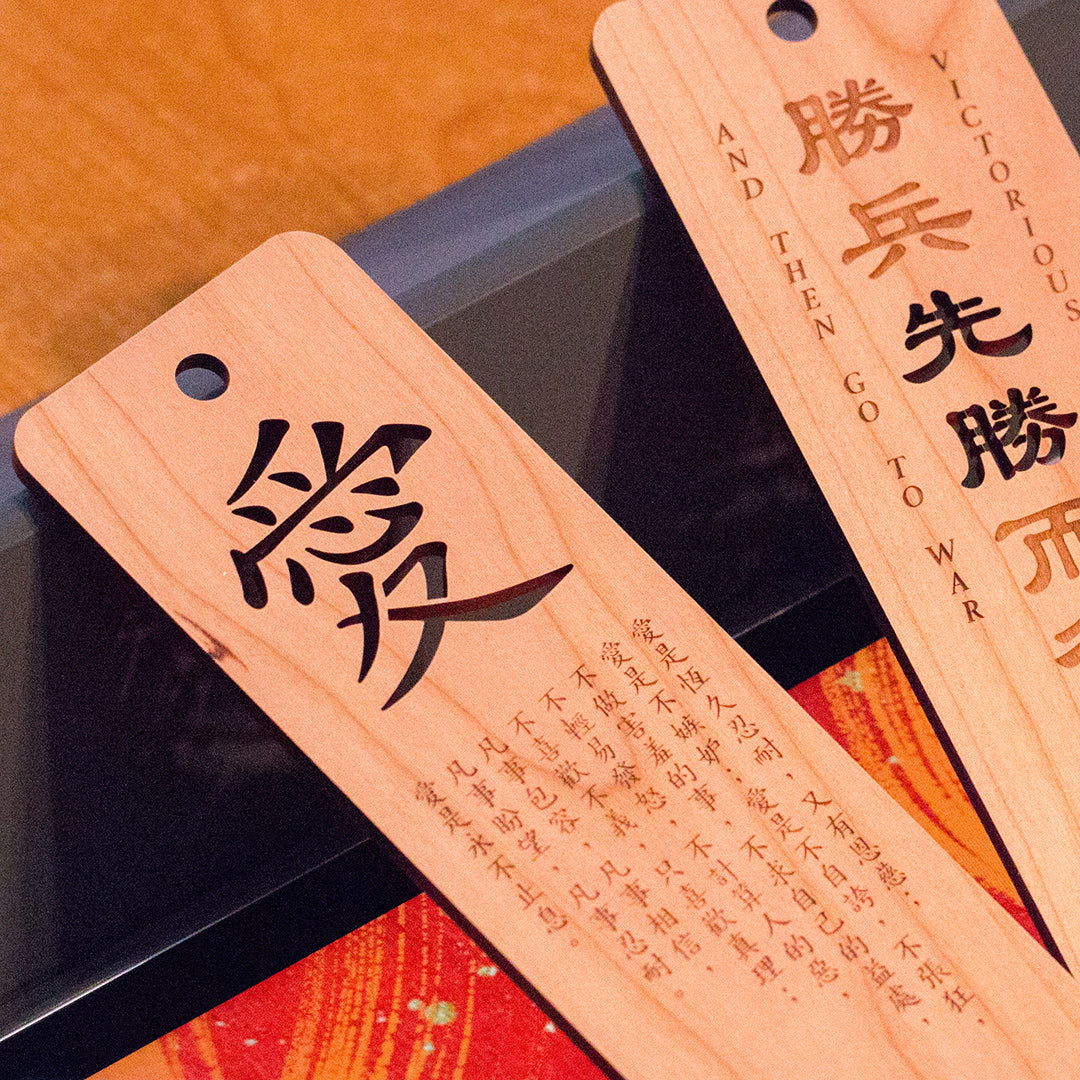 愛
愛是恆久忍耐，又有恩慈；
愛是不嫉妒；愛是不自誇，不張狂，
不做害羞的事，不求自己的益處，
不輕易發怒，不計算人的惡，
不喜歡不義，只喜歡真理；
凡事包容，凡事相信，
凡事盼望，凡事忍耐。
愛是永不止息。
VICTORIOUS
勝兵先勝而
AND THEN GO TO WAR